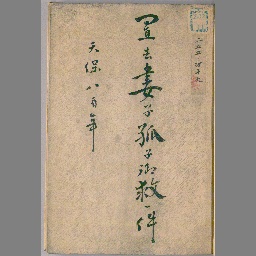 置去妻子孤子御救一件
天保八酉年